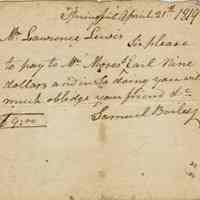 Springfield April 21th 1819
Mr Lawrence Lewis Sir please
to pay to Mr Moses Earl Nine
dollars and in so doing you will
much obledge your friend &c
$9.00 Samuel Bailey